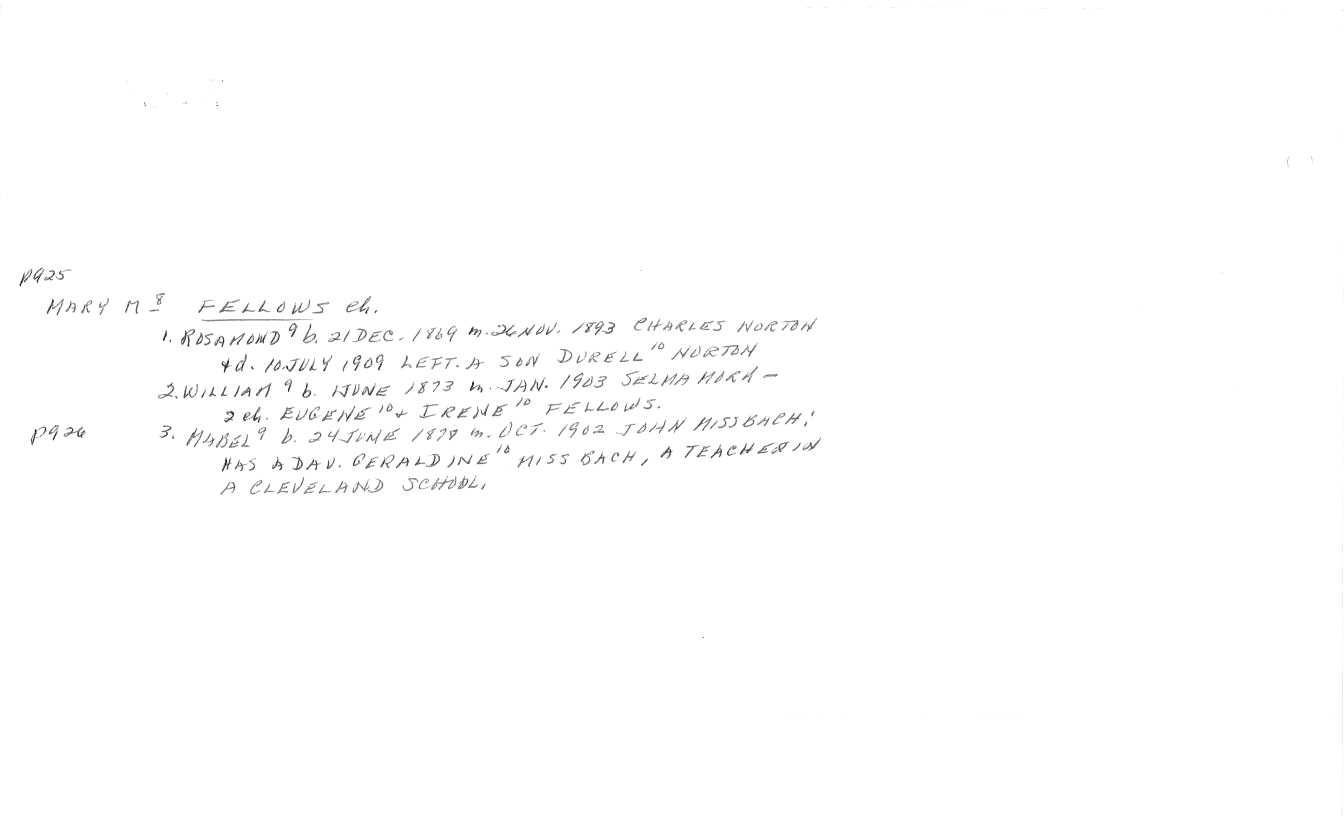 p925
MARY M 8 FELLOWS ch.
1. ROSAMOND 9 b. 21 DEC. 1869 m. 26 NOV. 1893 CHARLES NORTON
& d. 10 JULY 1909 LEFT. A SON DURELL 10 NORTON
2. WILLIAM 9 b. 1 JUNE 1873 m. JAN. 1903 SELMA –
2 ch. EUGENE 10 & IRENE 10 FELLOWS.
p926 3. MABEL 9 b. 24 JUNE 1878 m. OCT. 1902 JOHN MISSBACH;
HAS A DAU. GERALDINE 10 MISSBACH, A TEACHER IN
A CLEVELAND SCHOOL.